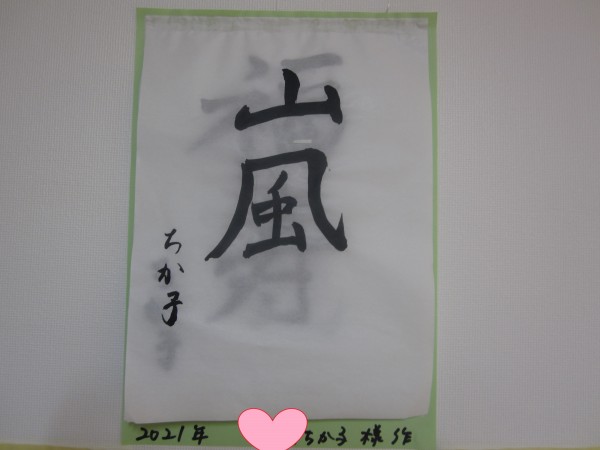 嵐
ちか子
2021年 ちか子 様 作